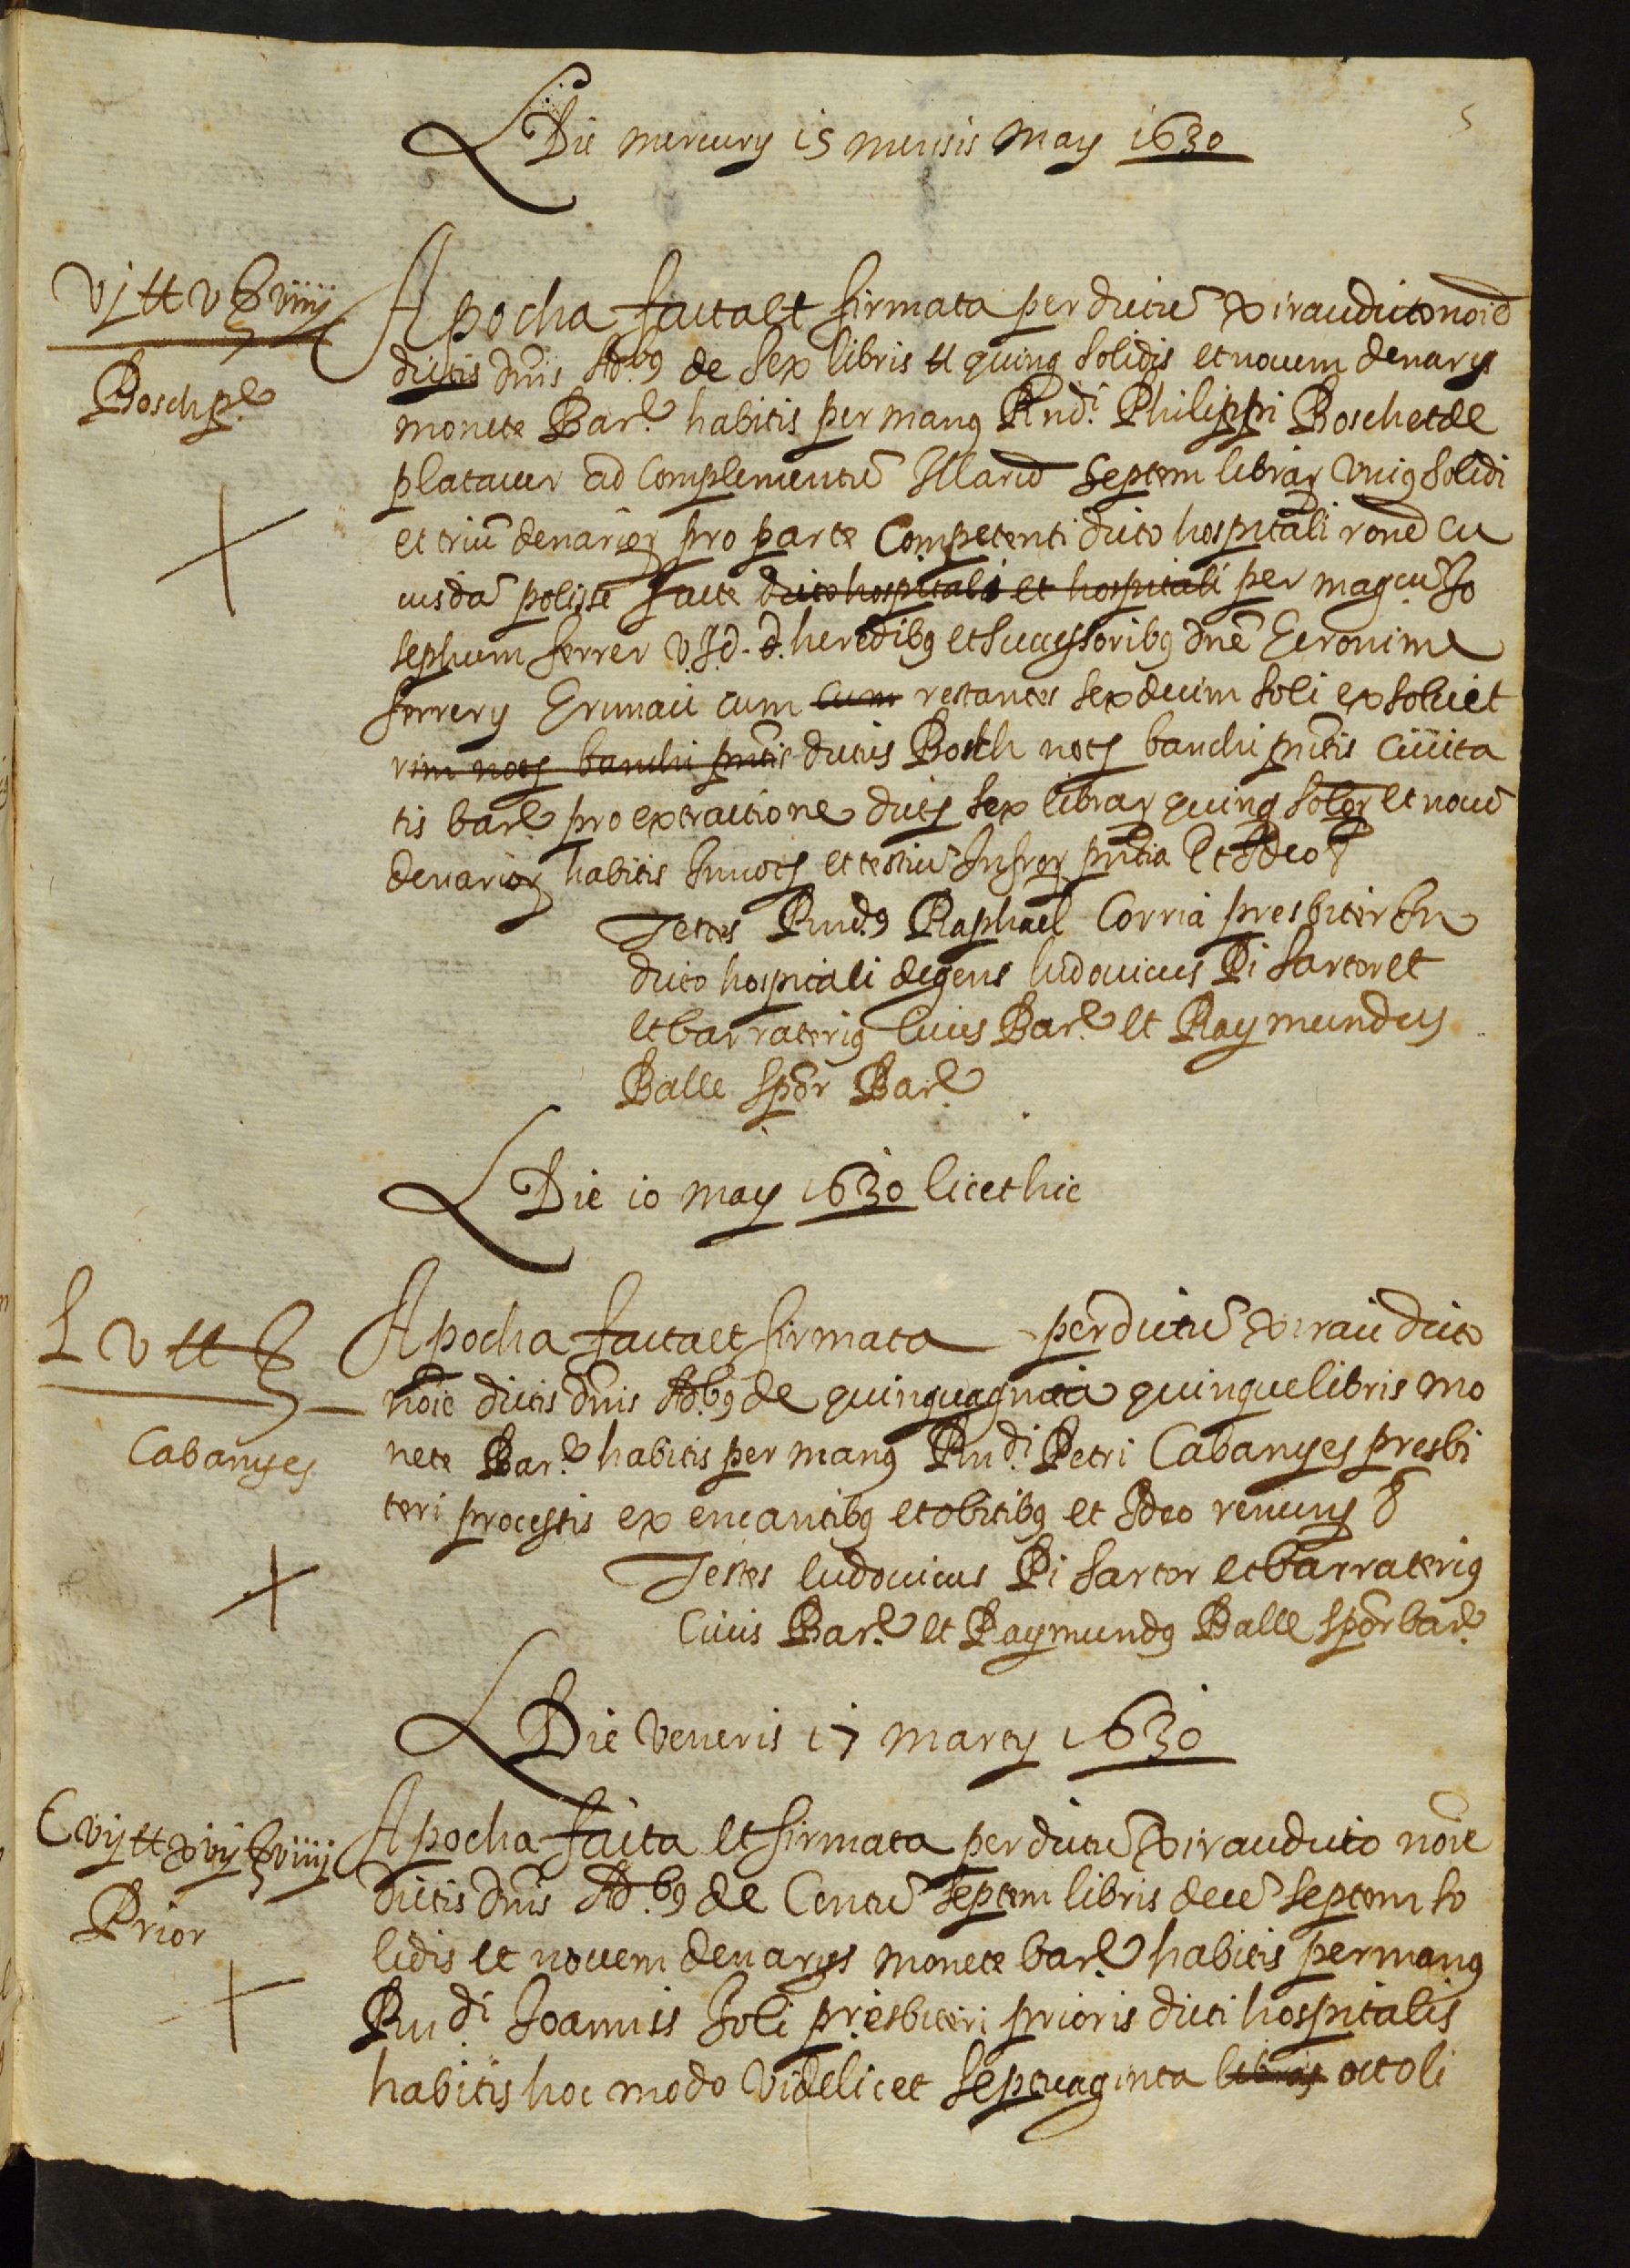 5
Die mercurÿ 15 mensis maÿ 1630
Vj ℔ v ß viiij
Apocha facta et firmata per dictũ Xirau dicto noiẽ
Bosch pr̃
dictis dñis Adbꝯ de sex libris et quinq solidis et novem denarÿs
monete Barᵉ habitis per manꝯ Rndi Philippi Bosch et de
plataver ad complementũ illarũ septem librarꝝ unius solidi
et triũ denarioꝝ pro parte competenti dicto hospitali ronẽ cu
iusdã polisse facte dicto hospitali et hospitali per magcũ Jo
sephum ferrer V.J.d. d. heredibꝯ et successoribꝯ dñe Geronime
ferrery Grimau cum cum restantes sexdecim soli exsolvet
rim notꝭ banchi pñtis dictus Bosch notꝭ banchi pñtis civita
tis barᵉ pro extractione dictꝭ sex librarꝝ quinq soloꝝ et novẽ
denarioꝝ habitis in notꝭ et testiũ infroꝝ pñtia Et Ideo &
Testes Rndꝯ Raphael Corria presbiter in
dicto hospitali degens ludovicus Pi sartor et
et barrateriꝯ civis Barᵉ et Raymundus
Balle spõr Barᵉ
Die 10 maÿ 1630 licet hic
L v ℔ ß
Apocha facta et firmata per dictũ Xirau dicto
noiẽ dictis dñis Adbꝯ de quinquaginta quinque libris mo
Cabanyes
nete Barᵉ habitis per manꝯ Rndi Petri Cabanyes presbi
teri processis ex encantibꝯ et obitibꝯ et Ideo renuns &
Testes ludovicus Pi sartor et barrateriꝯ
Civis Barᵉ et Raymundꝯ Balle spõr barᵉ
Die Veneris 17 marcÿ 1630
C vij ℔ xvij ß viiij
Apocha facta et firmata per dictũ Xirau dicto noiẽ
Prior
dictis dñis Adbꝯ de Centũ septem libris decẽ septem so
lidis et novem denarÿs monete barᵉ habitis per manꝯ
Rndi Joannis Joli presbiteri prioris dicti hospitalis
habitis hoc modo Videlicet septuaginta libras octo li